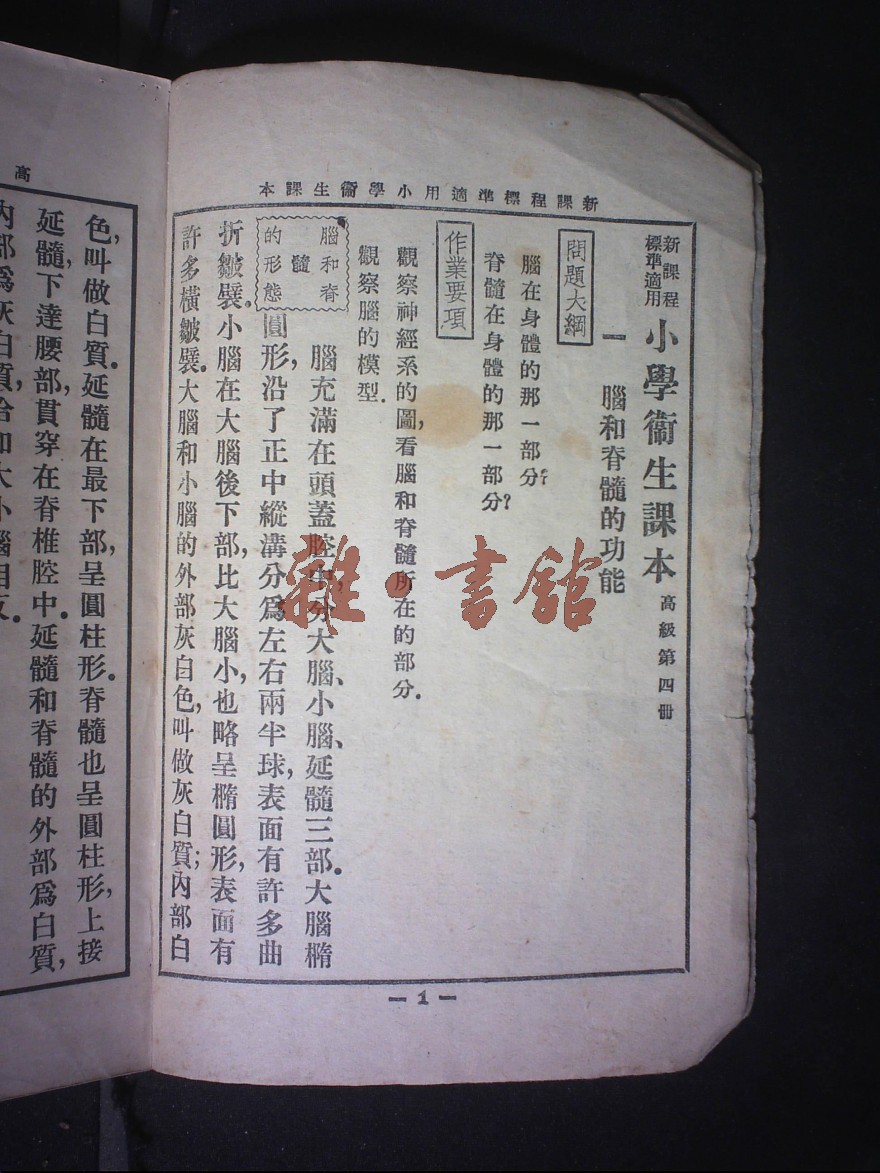 新課程標準適用小學衞生課本
新課程
標準適用
小學衞生課本 高級第四冊
一 腦和脊髓的功能
問題大綱
腦在身體的那一部分?
脊髓在身體的那一部分?
作業要項
觀察神經系的圖,看腦和脊髓所在的部分.
觀察腦的模型.
腦和脊
髓
的形態
腦充滿在頭蓋腔中,分大腦、小腦、延髓三部.大腦橢
圓形,沿了正中縱溝分爲左右兩半球,表面有許多曲
折皺襞.小腦在大腦後下部,比大腦小,也略呈橢圓形,表面有
許多橫皺襞.大腦和小腦的外部灰白色,叫做灰白質;內部白
— 1 —
高
色,叫做白質.延髓在最下部,呈圓柱形.脊髓也呈圓柱形,上接
延髓,下達腰部,貫穿在脊椎腔中.延髓和脊髓的外部爲白質,
內部爲灰白質,恰和大小腦相反.
雜·書館